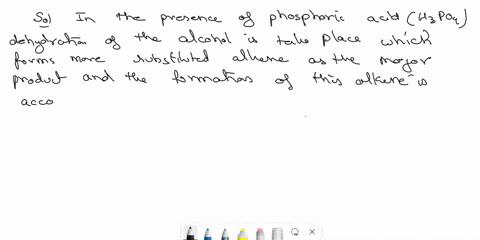 Sol In the presence of phosphoric acid (H3PO4)
dehydration of the alcohol is take place which
forms more substituted alkene as the major
product and the formation of this alkene is
acco